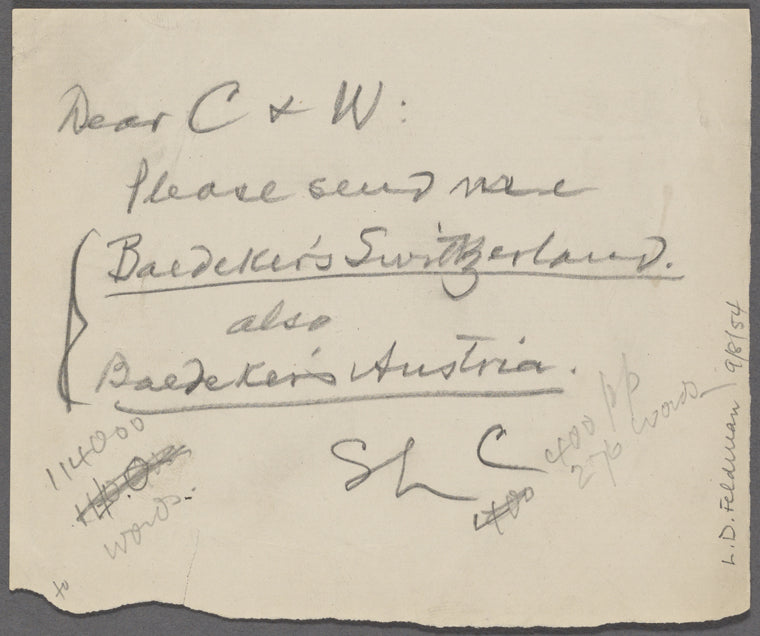 Dear C & W:
Please send me
Baedeker's Switzerland.
also
Baedeker's Austria.
SLC
114000
words.
400 pp
276 words
L.D. Feldman 9/8/54